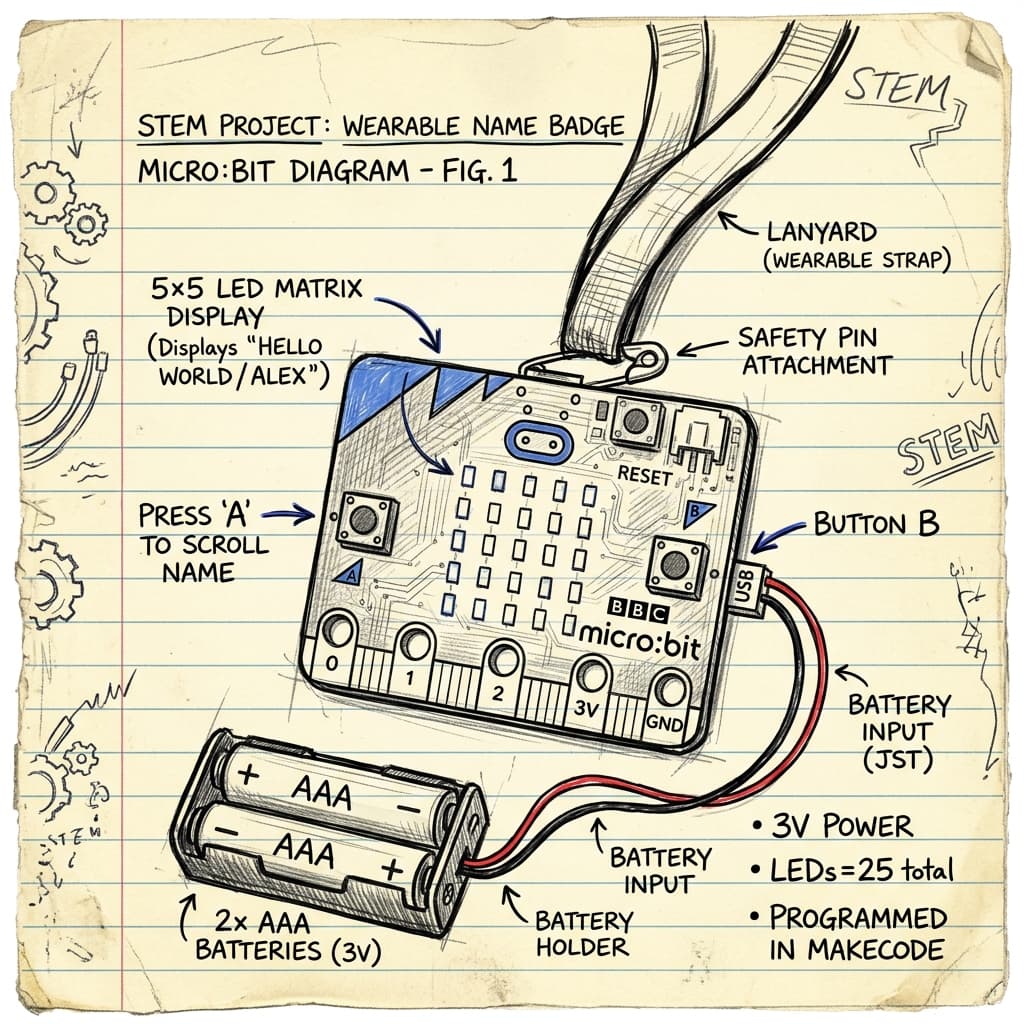 STEM PROJECT: WEARABLE NAME BADGE
MICRO:BIT DIAGRAM – FIG. 1
STEM
LANYARD
(WEARABLE STRAP)
5×5 LED MATRIX
DISPLAY
(Displays "HELLO
WORLD / ALEX")
SAFETY PIN
ATTACHMENT
STEM
RESET
B
PRESS 'A'
TO SCROLL
NAME
BUTTON B
A
USB
BBC
micro:bit
0
1
2
3V
GND
BATTERY
INPUT
(JST)
+ AAA –
– AAA +
STEM
BATTERY
INPUT
2x AAA
BATTERIES (3V)
BATTERY
HOLDER
• 3V POWER
• LEDs = 25 total
• PROGRAMMED
IN MAKECODE